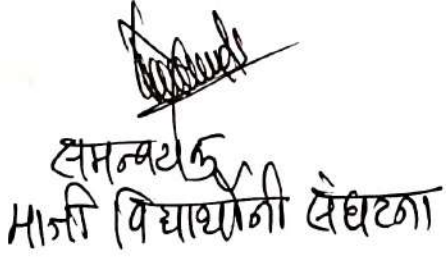 समन्वयक
माजी विद्यार्थीनी संघटना